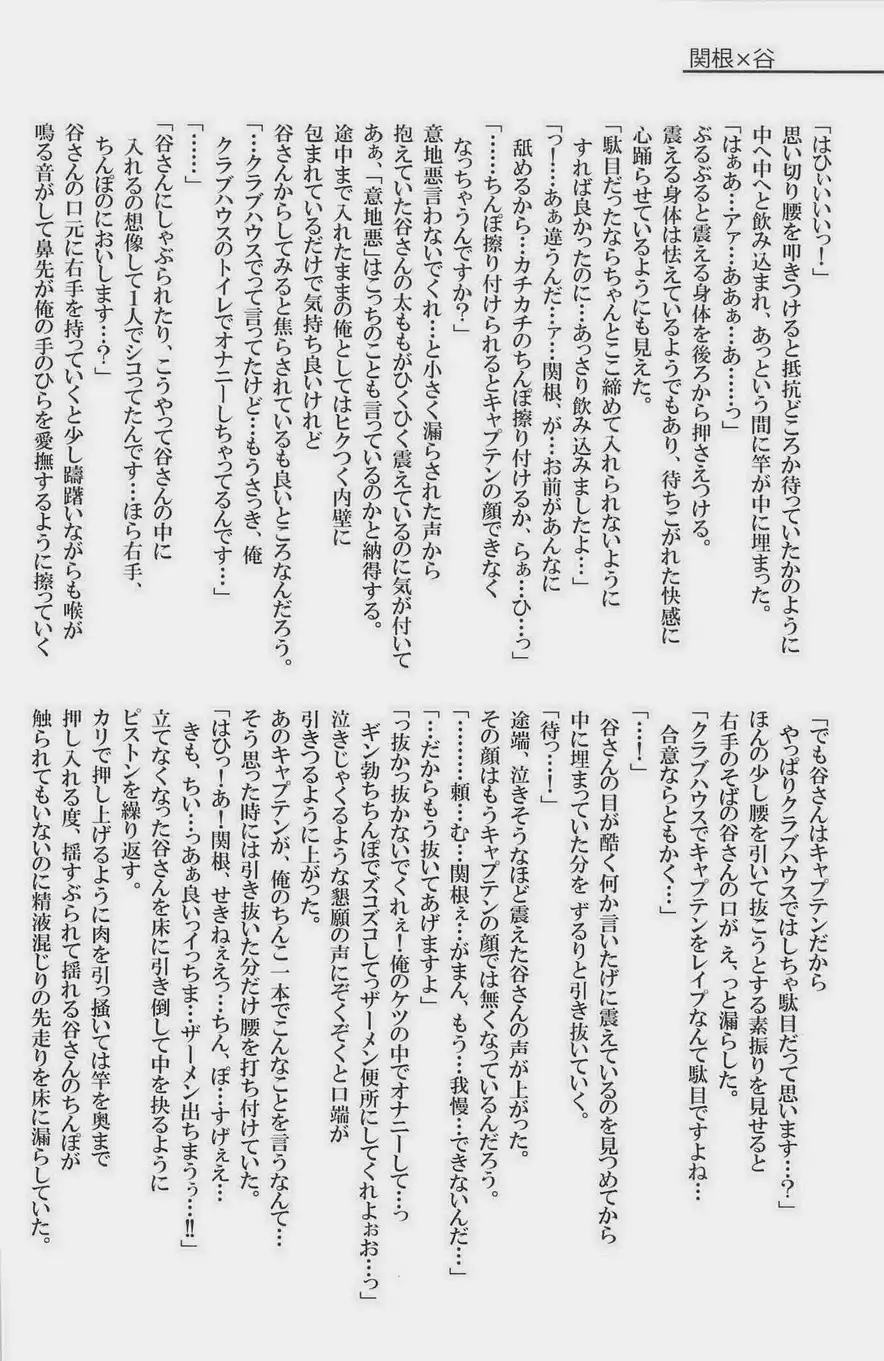 関根×谷
「はひぃいいいっ！」
思い切り腰を叩きつけると抵抗どころか待っていたかのように
中へ中へと飲み込まれ、あっという間に竿が中に埋まった。
「はぁあ…アァ…ああぁ…あ……っ」
ぶるぶると震える身体を後ろから押さえつける。
震える身体は怯えているようでもあり、待ちこがれた快感に
心踊らせているようにも見えた。
「駄目だったならちゃんとここ締めて入れられないように
すれば良かったのに…あっさり飲み込みましたよ…」
「っ！…あぁ違うんだ…ァ…関根、が…お前があんなに
舐めるから…カチカチのちんぽ擦り付けるか、らぁ…ひ…っ」
「……ちんぽ擦り付けられるとキャプテンの顔できなく
なっちゃうんですか？」
意地悪言わないでくれ…と小さく漏らされた声から
抱えていた谷さんの太ももがひくひく震えているのに気が付いて
あぁ、「意地悪」はこっちのことも言っているのかと納得する。
途中まで入れたままの俺としてはヒクつく内壁に
包まれているだけで気持ち良いけれど
谷さんからしてみると焦らされているも良いところなんだろう。
「…クラブハウスでって言ってたけど…もうさっき、俺
クラブハウスのトイレでオナニーしちゃってるんです…」
「……」
「谷さんにしゃぶられたり、こうやって谷さんの中に
入れるの想像して1人でシコってたんです…ほら右手、
ちんぽのにおいします…？」
谷さんの口元に右手を持っていくと少し躊躇いながらも喉が
鳴る音がして鼻先が俺の手のひらを愛撫するように擦っていく
「でも谷さんはキャプテンだから
やっぱりクラブハウスではしちゃ駄目だって思います…？」
ほんの少し腰を引いて抜こうとする素振りを見せると
右手のそばの谷さんの口が え、っと漏らした。
「クラブハウスでキャプテンをレイプなんて駄目ですよね…
合意ならともかく…」
「…！」
谷さんの目が酷く何か言いたげに震えているのを見つめてから
中に埋まっていた分を ずるりと引き抜いていく。
「待っ…！」
途端、泣きそうなほど震えた谷さんの声が上がった。
その顔はもうキャプテンの顔では無くなっているんだろう。
「………頼…む…関根ぇ…がまん、もう…我慢…できないんだ…」
「…だからもう抜いてあげますよ」
「っ抜かっ抜かないでくれぇ！俺のケツの中でオナニーして…っ
ギン勃ちちんぽでズコズコしてっザーメン便所にしてくれよぉお…っ」
泣きじゃくるような懇願の声にぞくぞくと口端が
引きつるように上がった。
あのキャプテンが、俺のちんこ一本でこんなことを言うなんて…
そう思った時には引き抜いた分だけ腰を打ち付けていた。
「はひっ！あ！関根、せきねぇえっ…ちん、ぽ…すげぇえ…
きも、ちい…っあぁ良いっイっちま…ザーメン出ちまうぅ…!!」
立てなくなった谷さんを床に引き倒して中を抉るように
ピストンを繰り返す。
カリで押し上げるように肉を引っ掻いては竿を奥まで
押し入れる度、揺すぶられて揺れる谷さんのちんぽが
触られてもいないのに精液混じりの先走りを床に漏らしていた。